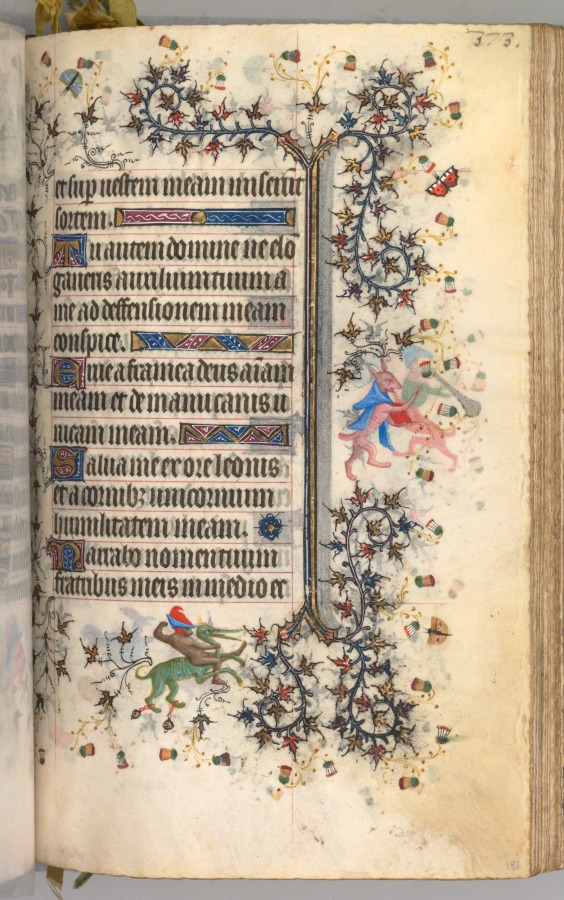 373.
et sup uestem meam miserūt
sortem.
Tu autem domine ne elo
gaueris auxilium tuum a
me ad deffensionem meam
conspice.
Erue a framea deus aīam
meam et de manu canis u
nicam meam.
Salua me ex ore leonis
et a cornibꝫ unicornuum
humilitatem meam.
Narrabo nomen tuum
fratribus meis in medio ec